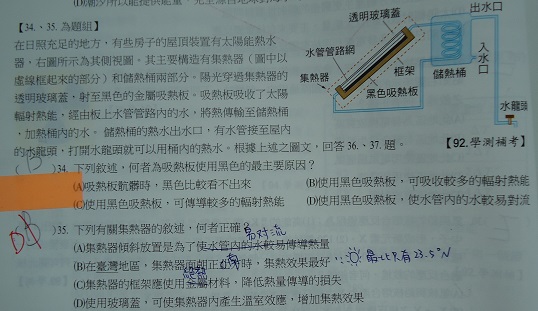 (D)潮汐所以能提供能量，
【34.、35. 為題組】
在日照充足的地方，有些房子的屋頂裝置有太陽能熱水
器，右圖所示為其側視圖，其主要構造有集熱器（圖中以
虛線框起來的部分）和儲熱桶兩部分。陽光穿過集熱器的
透明玻璃蓋，射至黑色的金屬吸熱板。吸熱板吸收了太陽
輻射熱能，經由板上水管管路內的水，將熱傳輸至儲熱桶
，加熱桶內的水。儲熱桶的熱水出水口，有水管接至屋內
的水龍頭，打開水龍頭就可以用桶內的熱水。根據上述之圖文，回答 36.、37. 題。【92.學測補考】
透明玻璃蓋
出水口
水管管路網
入水口
集熱器
框架
儲熱桶
黑色吸熱板
水龍頭
(B)34. 下列敘述，何者為吸熱板使用黑色的最主要原因？
(A)吸熱板骯髒時，黑色比較看不出來 (B)使用黑色吸熱板，可吸收較多的輻射熱能
(C)使用黑色吸熱板，可傳導較多的輻射熱能 (D)使用黑色吸熱板，使水管內的水較易對流
D B )35. 下列有關集熱器的敘述，何者正確？
易對流
(A)集熱器傾斜放置是為了使水管內的水較易傳導熱量
(B)在臺灣地區，集熱器面朝正東時，集熱效果最好 南 ∵ 最北只有23.5°N
絕熱
(C)集熱器的框架應使用金屬材料，降低熱量傳導的損失
(D)使用玻璃蓋，可使集熱器內產生溫室效應，增加集熱效果